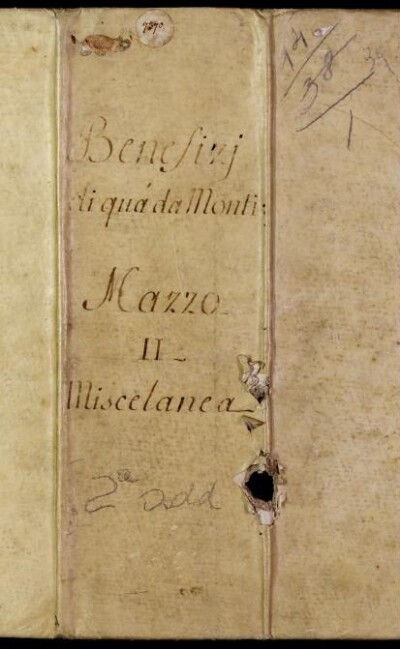 Benefizj
di quá da Monti
Mazzo
II
Miscelanea
2a Add